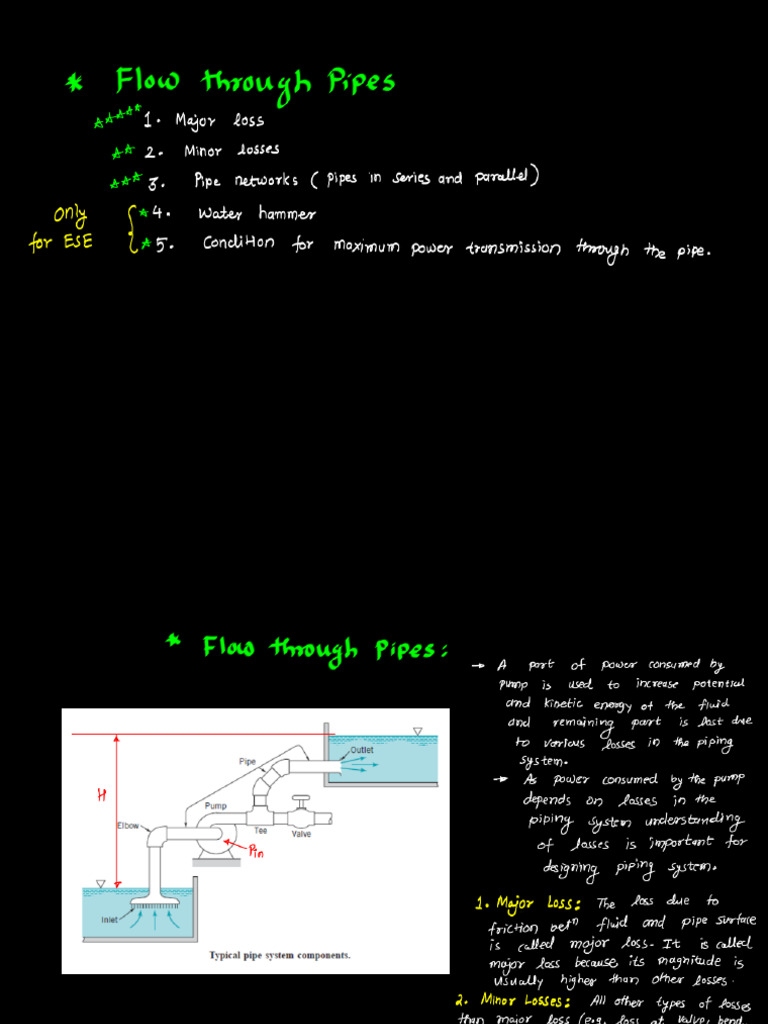 * Flow through Pipes
1. Major loss
2. Minor losses
3. Pipe networks ( pipes in series and parallel)
Only for ESE
4. Water hammer
5. Condition for maximum power transmission through the pipe.
* Flow through Pipes:
→ A part of power consumed by
pump is used to increase potential
and kinetic energy of the fluid
and remaining part is lost due
to various losses in the piping
system.
→ As power consumed by the pump
depends on losses in the
piping system understanding
of losses is important for
designing piping system.
H
Pipe
Outlet
Pump
Elbow
Tee
Valve
Pin
Inlet
Typical pipe system components.
1. Major Loss: The loss due to
friction betn fluid and pipe surface
is called major loss. It is called
major loss because its magnitude is
usually higher than other losses.
2. Minor Losses: All other types of losses
than major loss (e.g. loss at valve, bend